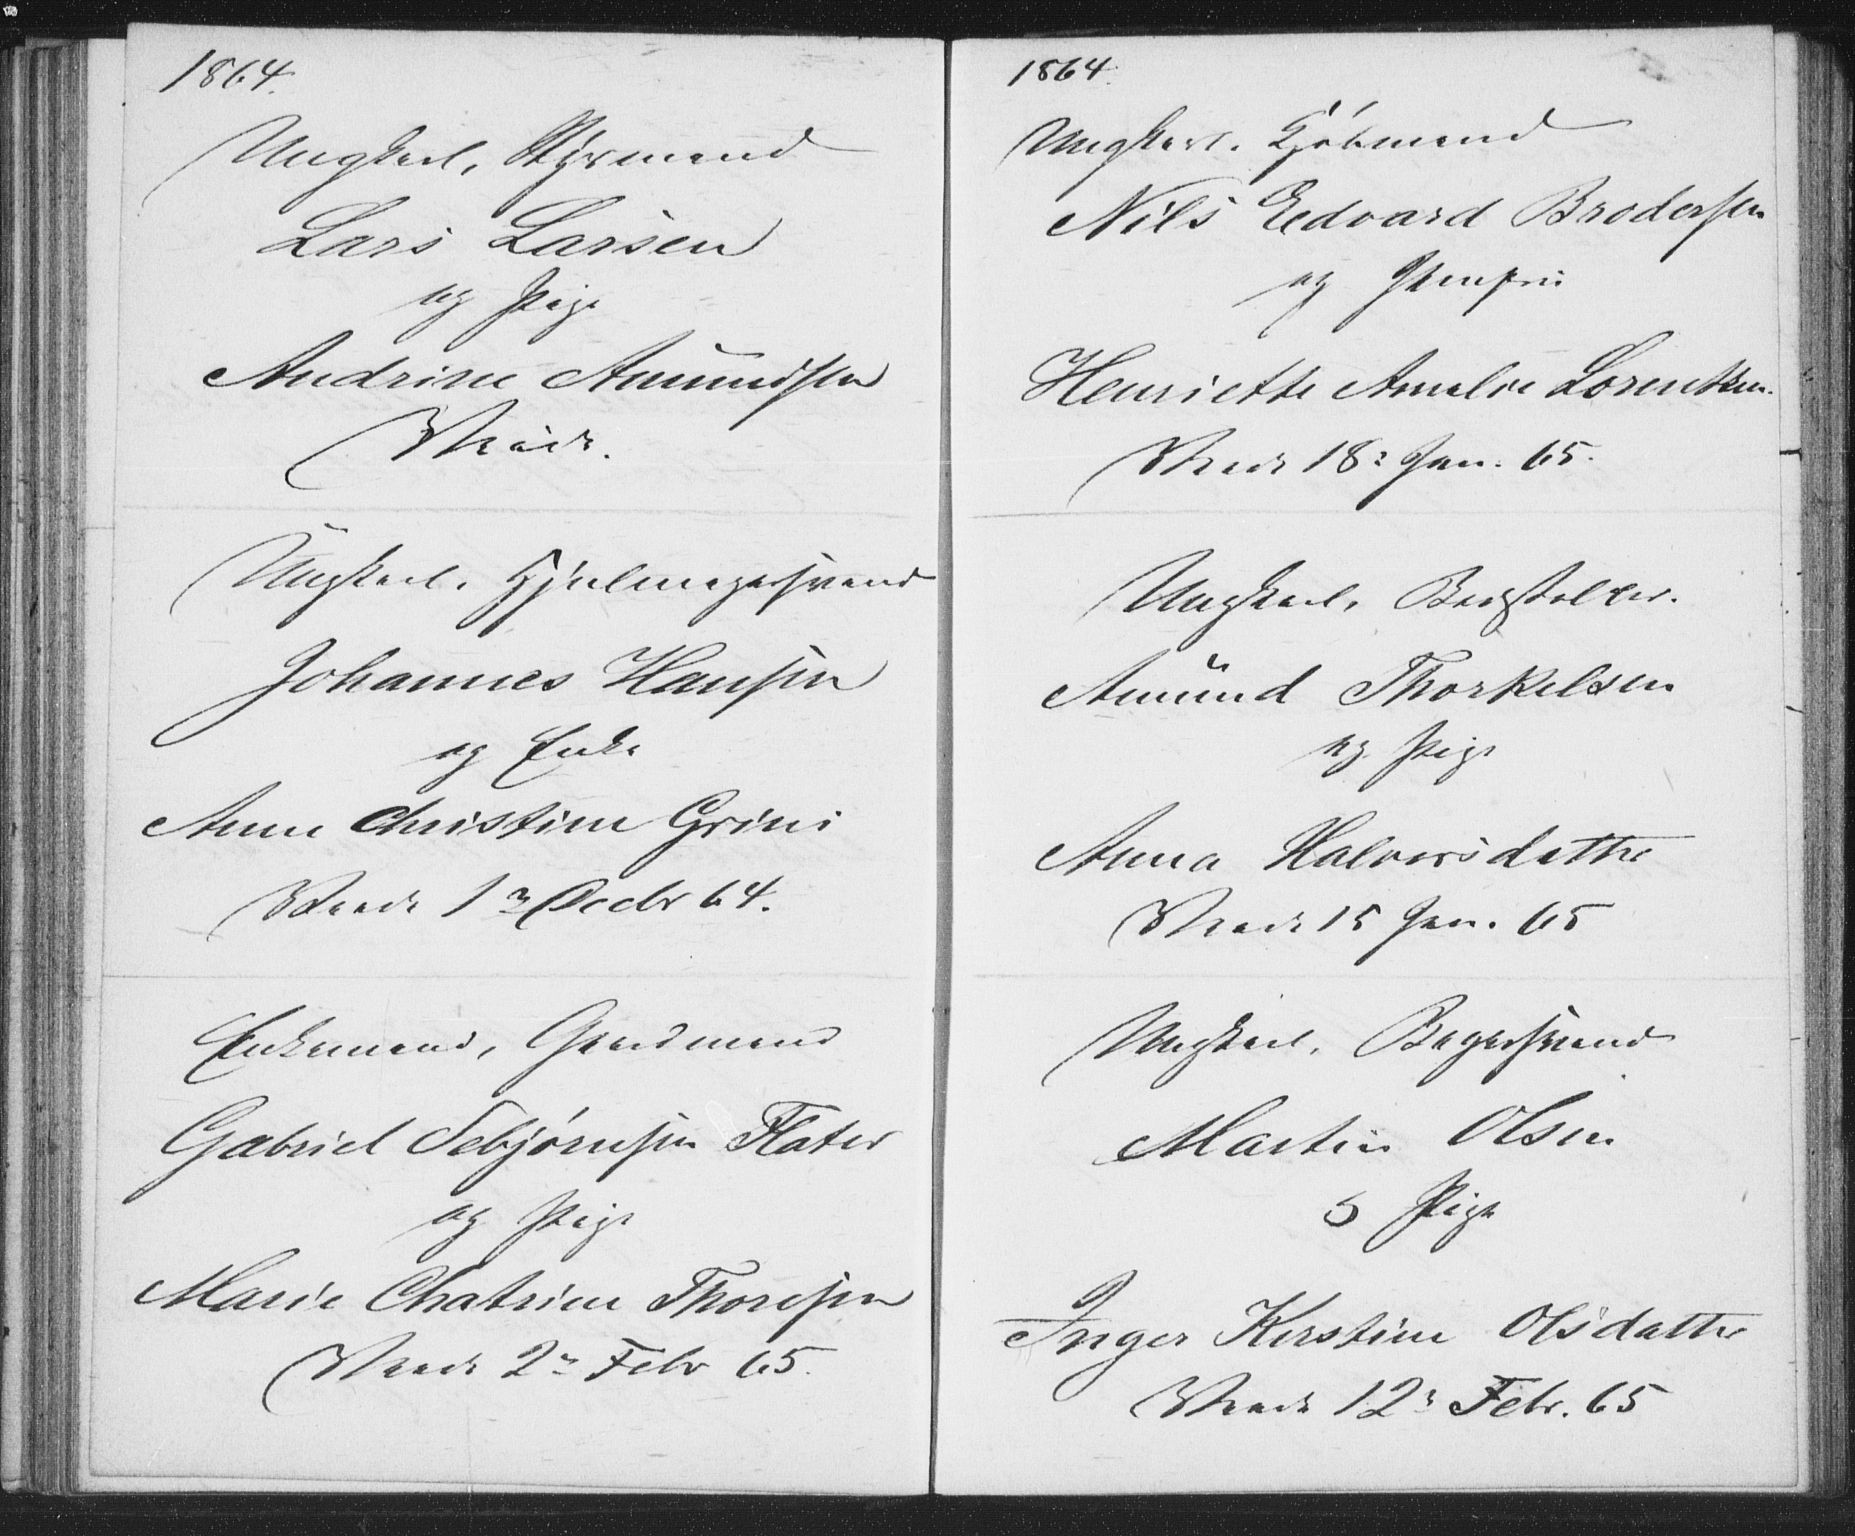 1864.
Ungkarl, Styrmand
Lars Larsen
og Pige
Andrine Amundsen
Viede.
Ungkarl, Hjulmagersvend
Johannes Hansen
og Enke
Anne Christine Grini
Viede 1 Decbr 64.
Enkemand, Gaardmand
Gabriel Tebjørnsen Flater
og Pige
Marie Chatrine Thoresen
Viede 2 Febr 65.
1864.
Ungkarl. Kjøbmand
Nils Edvard Brodersen
og Jomfru
Henriette Amalie Lorentzen.
Viede 18 Jan. 65.
Ungkarl,
Amund Thorkelsen
og Pige
Anna Halvorsdatter
Viede 15 Jan. 65
Ungkarl, Bagersvend
Martin Olsen
Pige
Inger Kirstine Olsdatter
Viede 12 Febr. 65